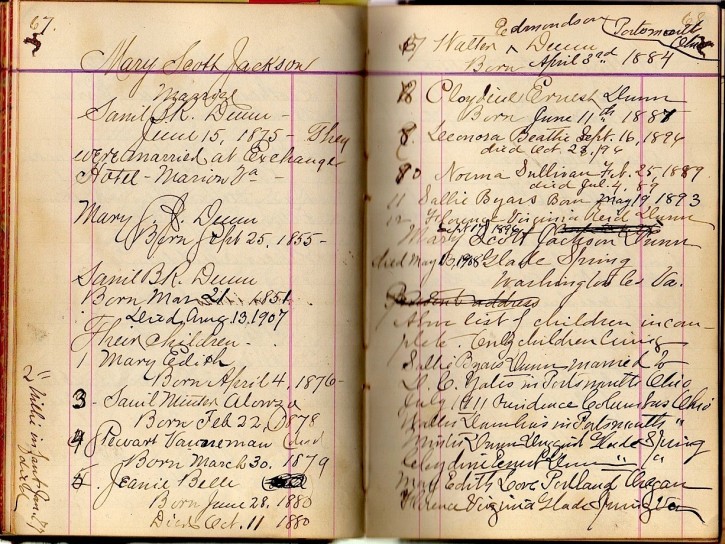 67.
Mary Scott Jackson
Married
Saml B.R. Dunn -
June 15, 1875 - They
were married at Exchange
Hotel - Marion Va -
Mary J. S. Dunn
Born Sept 25, 1855 -
Saml B.R. Dunn
Born Mar 21. 1851
Died Aug. 13, 1907
Their children -
1 Mary Edith
Born April 4, 1876 -
3 - Saml Minter Alonzo
Born Feb 22, 1878
4 Stewart Vanneman Died
Born March 30. 1879
5 Jeanie Belle
Born June 28. 1880
Died Oct. 11 1880
68
Edmondson Portsmouth Ohio
Walter Dunn
Born April 3rd 1884
Cloydine Ernest Dunn
Born June 11th 1887
Leonora Beattie Sept. 16, 1894
died Oct. 28, 94
Norma Sullivan Feb. 25, 1889
died Jul. 4, 89
11 Sallie Byars Born May 19, 1893
12 Florence Virginia Reid Dunn
Sept 17 1896
Mary Scott Jackson Dunn
died May 13, 1908 Glade Spring
Washington Co Va.
Above list of children incom-
plete. Only children living
Sallie Byars Dunn married to
in Portsmouth Ohio
July 1911 Residence Columbus Ohio
Walter Dunn lives in Portsmouth "
Minter Dunn Glade Spring
Cloydine Ernest Dunn " "
Mary Edith Love Portland Oregon
Florence Virginia Glade Spring Va